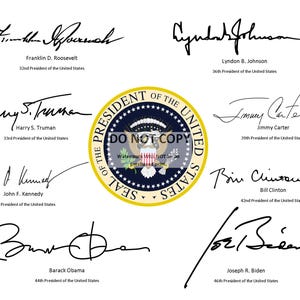 Franklin D Roosevelt
Franklin D. Roosevelt
32nd President of the United States
Lyndon B Johnson
Lyndon B. Johnson
36th President of the United States
Harry S. Truman
Harry S. Truman
33rd President of the United States
Jimmy Carter
Jimmy Carter
39th President of the United States
Kennedy
John F. Kennedy
35th President of the United States
Bill Clinton
Bill Clinton
42nd President of the United States
Barack Obama
Barack Obama
44th President of the United States
Joe Biden
Joseph R. Biden
46th President of the United States
SEAL OF THE PRESIDENT OF THE UNITED STATES
DO NOT COPY
Watermark WILL NOT